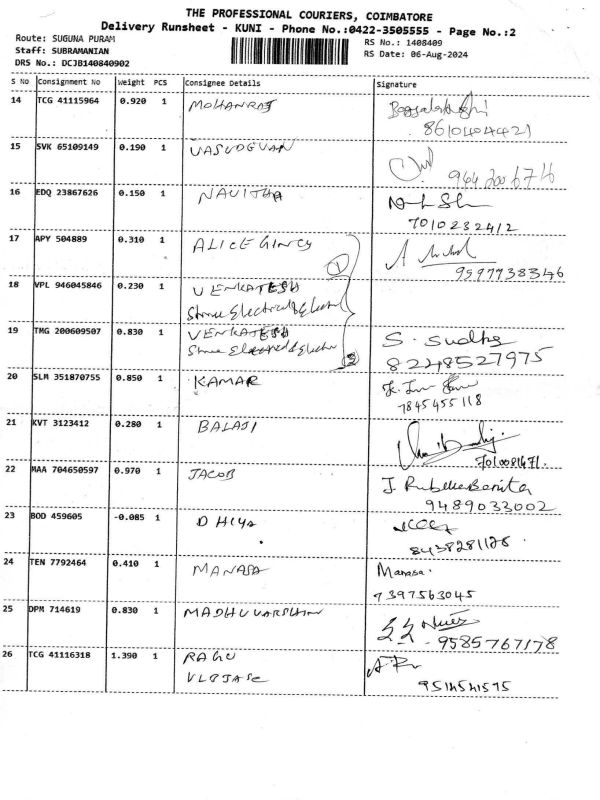 THE PROFESSIONAL COURIERS, COIMBATORE
Delivery Runsheet - KUNI - Phone No.:0422-3505555 - Page No.:2
Route: SUGUNA PURAM
Staff: SUBRAMANIAN
DRS No.: DCJB140840902
RS No.: 1408409
RS Date: 06-Aug-2024
S No Consignment No Weight PCS Consignee Details Signature
14 TCG 41115964 0.920 1 MOHANRAJ
8610404421
15 SVK 65109149 0.190 1 VASUDEVAN
16 EDQ 23867626 0.150 1 NAVITHA
7010232412
17 APY 504889 0.310 1 ALICE GINCY
1
9597738346
18 VPL 946045846 0.230 1 VENKATESH
Electrical &
19 TMG 200609507 0.830 1 VENKATESH S. Sudha
2 8248527975
20 SLM 351870755 0.850 1 KAMAR
7845455118
21 KVT 3123412 0.280 1 BALAJI
22 MAA 704650597 0.970 1 JACOB J Rubella Benita
9489033002
23 BOD 459605 -0.085 1 DHIYA
8438281128
24 TEN 7792464 0.410 1 MANASA Manasa.
7397563045
25 DPM 714619 0.830 1 MADHUVARSHIN
9585767178
26 TCG 41116318 1.390 1 RAGU
9514541515